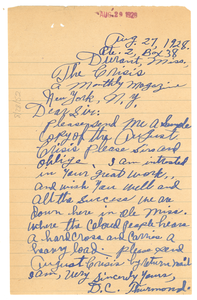 AUG 29 1928
Aug. 27, 1928.
Rte. 2, Box 38
Durant, Miss.
The Crisis
a Monthly Magazine
New York, N.Y.
Dear Sir:
Please send me a Sample
Copy of the August
Crisis Please Sirs and
oblige. I am intrested
in Your great work,,
and wish You well and
all the Success. we are
down here in ole Miss.
where the colored people bears
a hard cross and carries a
heavy load. Please send
August Crisis by return mail
I am, Very Sincerely Yours,
D.C. Thurmond.